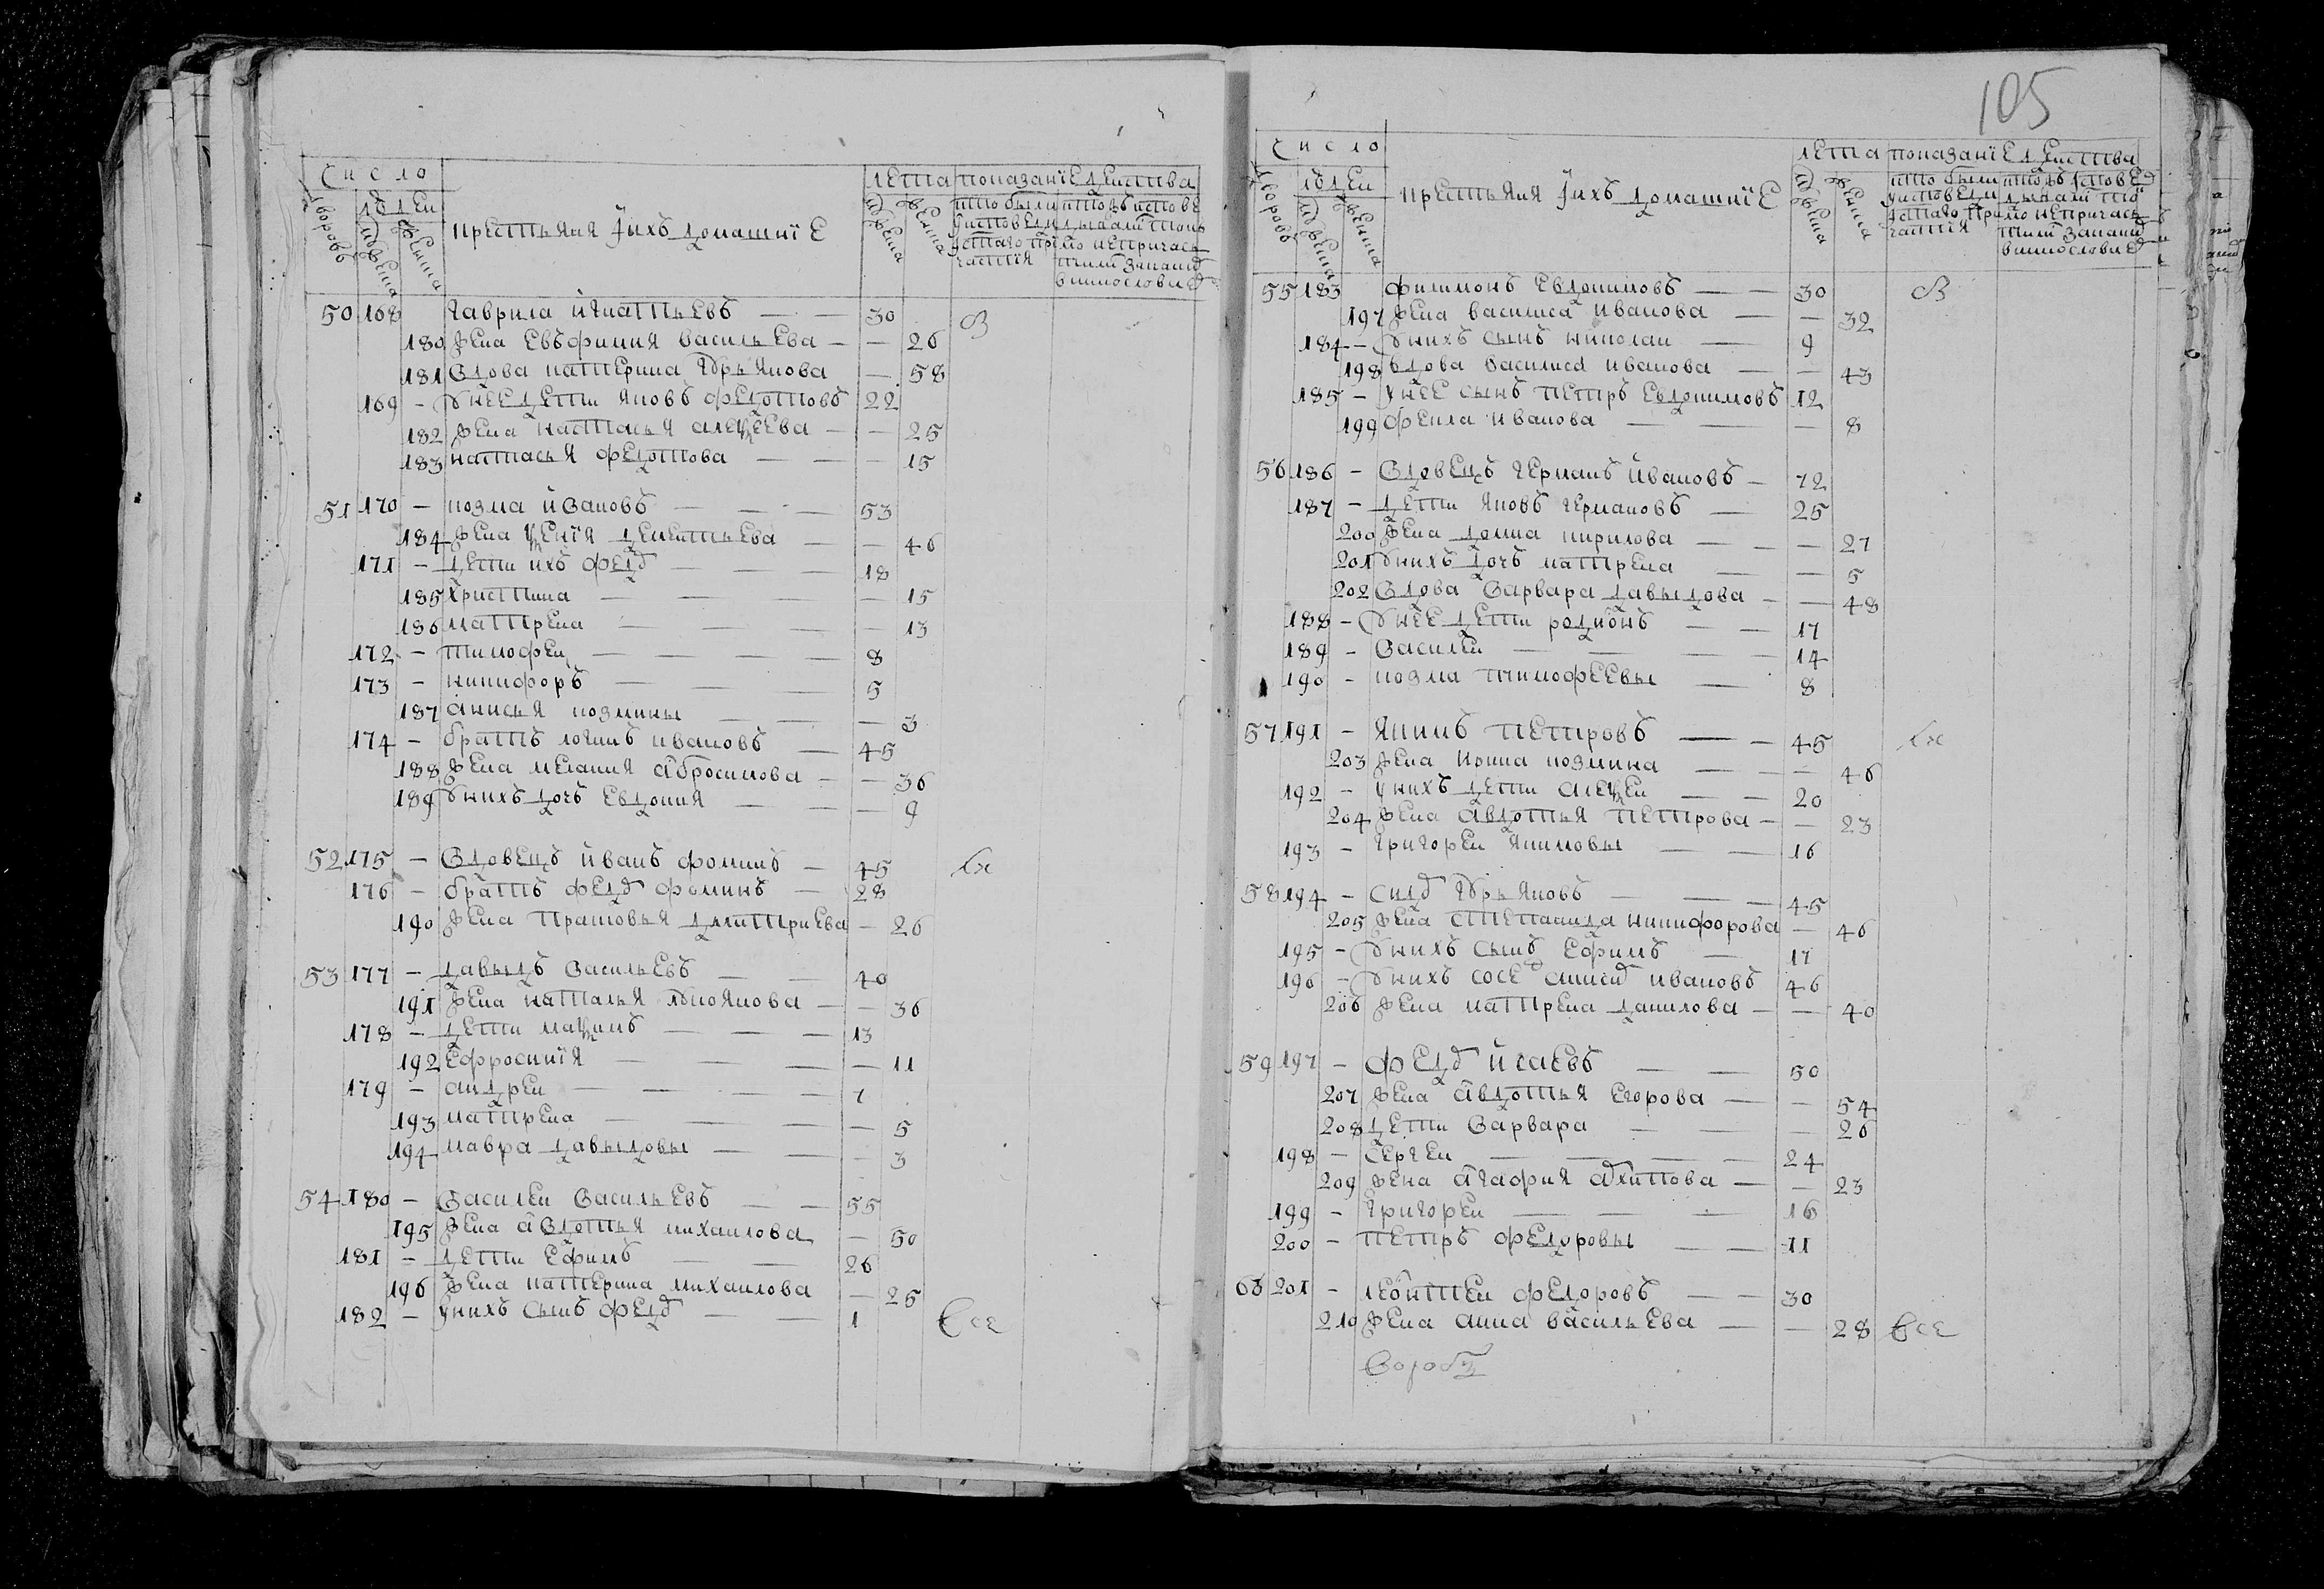 число
дворовъ
людеи
мужеска
женска
крестьяня и ихъ домашние
лета
мужеска
женска
показание действа
50 168 гаврила игнатьевъ — — 30
180 жена евъфимия васильева — — 26
181 вдова катерина ябрьянова — 58
169 — у нее дети яковъ федотовъ 22
182 жена наталья алексеева — — 25
183 наталья федотова — — — 15
51 170 — козма ивановъ — — — 53
184 жена ксения дементьева — — 46
171 — дети ихъ федоръ — — — 18
185 христина — — — — 15
186 матрена — — — — 13
172 — тимофеи — — — — 8
173 — никифоръ — — — 5
187 анисья козмины — — — 3
174 — братъ логинъ ивановъ — 45
188 жена мелания абросимова — — 36
189 у нихъ дочь евдокия — — — 9
52 175 — вдовецъ иванъ фоминъ — 45
176 — братъ федоръ фоминъ — 28
190 жена прасковья дмитриева — 26
53 177 — давыдъ васильевъ — — 40
191 жена наталья лукоянова — — 36
178 — дети максимъ — — — 13
192 ефросиния — — — — 11
179 — андреи — — — — 7
193 матрена — — — — 5
194 мавра давыдовы — — — 3
54 180 — василеи васильевъ — — 55
195 жена авдотья михаилова — 50
181 — дети ефимъ — — 26
196 жена катерина михаилова — 25
182 — у нихъ сынъ федоръ — — 1 все
105
число
дворовъ
людеи
мужеска
женска
крестьяня и ихъ домашние
лета
мужеска
женска
показание действа
55 183 филимонъ евдокимовъ — — 30
197 жена василиса иванова — — 32
184 — у нихъ сынъ николаи — 9
198 вдова василиса иванова — — 43
185 — у нее сынъ петръ евдокимовъ 12
199 фекла иванова — — — 8
56 186 — вдовецъ германъ ивановъ — 72
187 — дети яковъ германовъ — 25
200 жена домна кирилова — — — 27
201 у нихъ дочь матрена — — 5
202 вдова варвара давыдова — — 48
188 — у нее дети родионъ — — 17
189 — василеи — — — 14
190 — козма тимофеевы — 8
57 191 — якимъ петровъ — — 45
203 жена ирина козмина — — — 46
192 — у нихъ дети алексеи — — 20
204 жена авдотья петрова — — 23
193 — григореи якимовы — — 16
58 194 — сидоръ ябрьяновъ — — — 45
205 жена степанида никифорова — 46
195 — у нихъ сынъ ефимъ — 17
196 — у нихъ соседъ ивановъ 46
206 жена матрена данилова — — 40
59 197 — федоръ исаевъ — — 50
207 жена авдотья егорова — — 54
208 дети варвара — — — 26
198 — сергеи — — — 24
209 жена агафия архипова — — 23
199 — григореи — — — 16
200 — петръ федоровы — — 11
60 201 — леонтеи федоровъ — — 30
210 жена анна васильева — — 28 все